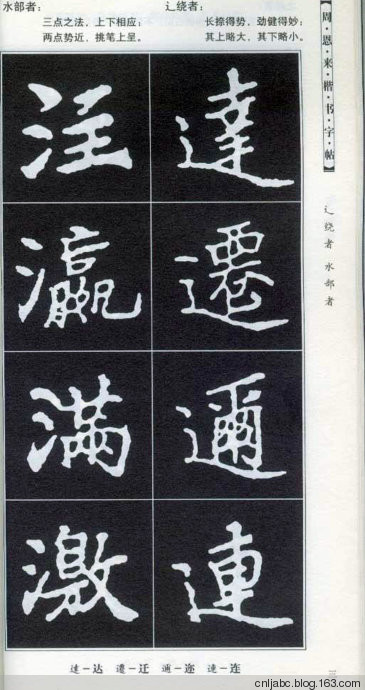 水部者：
三点之法，上下相应；
两点势近，挑笔上呈。
辶绕者：
长捺得势，劲健得妙；
其上略大，其下略小。
【周·恩·来·楷·书·字·帖】
辶绕者 水部者
達 注
遷 瀛
邇 滿
連 激
達—达 遷—迁 邇—迩 連—连
cnljabc.blog.163.com